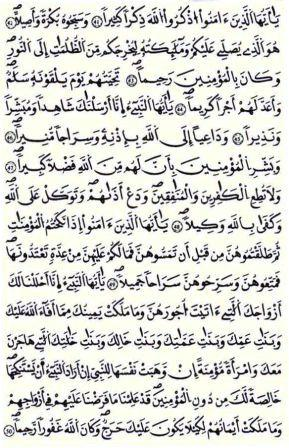 يَٰٓأَيُّهَا ٱلَّذِينَ ءَامَنُوا۟ ٱذْكُرُوا۟ ٱللَّهَ ذِكْرًا كَثِيرًا ٤١ وَسَبِّحُوهُ بُكْرَةً وَأَصِيلًا ٤٢
هُوَ ٱلَّذِى يُصَلِّى عَلَيْكُمْ وَمَلَٰٓئِكَتُهُۥ لِيُخْرِجَكُم مِّنَ ٱلظُّلُمَٰتِ إِلَى ٱلنُّورِ
وَكَانَ بِٱلْمُؤْمِنِينَ رَحِيمًا ٤٣ تَحِيَّتُهُمْ يَوْمَ يَلْقَوْنَهُۥ سَلَٰمٌ
وَأَعَدَّ لَهُمْ أَجْرًا كَرِيمًا ٤٤ يَٰٓأَيُّهَا ٱلنَّبِىُّ إِنَّآ أَرْسَلْنَٰكَ شَٰهِدًا وَمُبَشِّرًا
وَنَذِيرًا ٤٥ وَدَاعِيًا إِلَى ٱللَّهِ بِإِذْنِهِۦ وَسِرَاجًا مُّنِيرًا ٤٦
وَبَشِّرِ ٱلْمُؤْمِنِينَ بِأَنَّ لَهُم مِّنَ ٱللَّهِ فَضْلًا كَبِيرًا ٤٧
وَلَا تُطِعِ ٱلْكَٰفِرِينَ وَٱلْمُنَٰفِقِينَ وَدَعْ أَذَىٰهُمْ وَتَوَكَّلْ عَلَى ٱللَّهِ
وَكَفَىٰ بِٱللَّهِ وَكِيلًا ٤٨ يَٰٓأَيُّهَا ٱلَّذِينَ ءَامَنُوٓا۟ إِذَا نَكَحْتُمُ ٱلْمُؤْمِنَٰتِ
ثُمَّ طَلَّقْتُمُوهُنَّ مِن قَبْلِ أَن تَمَسُّوهُنَّ فَمَا لَكُمْ عَلَيْهِنَّ مِنْ عِدَّةٍ تَعْتَدُّونَهَا
فَمَتِّعُوهُنَّ وَسَرِّحُوهُنَّ سَرَاحًا جَمِيلًا ٤٩ يَٰٓأَيُّهَا ٱلنَّبِىُّ إِنَّآ أَحْلَلْنَا لَكَ
أَزْوَٰجَكَ ٱلَّٰتِىٓ ءَاتَيْتَ أُجُورَهُنَّ وَمَا مَلَكَتْ يَمِينُكَ مِمَّآ أَفَآءَ ٱللَّهُ عَلَيْكَ
وَبَنَاتِ عَمِّكَ وَبَنَاتِ عَمَّٰتِكَ وَبَنَاتِ خَالِكَ وَبَنَاتِ خَٰلَٰتِكَ ٱلَّٰتِى هَاجَرْنَ
مَعَكَ وَٱمْرَأَةً مُّؤْمِنَةً إِن وَهَبَتْ نَفْسَهَا لِلنَّبِىِّ إِنْ أَرَادَ ٱلنَّبِىُّ أَن يَسْتَنكِحَهَا
خَالِصَةً لَّكَ مِن دُونِ ٱلْمُؤْمِنِينَ قَدْ عَلِمْنَا مَا فَرَضْنَا عَلَيْهِمْ فِىٓ أَزْوَٰجِهِمْ
وَمَا مَلَكَتْ أَيْمَٰنُهُمْ لِكَيْلَا يَكُونَ عَلَيْكَ حَرَجٌ وَكَانَ ٱللَّهُ غَفُورًا رَّحِيمًا ٥٠